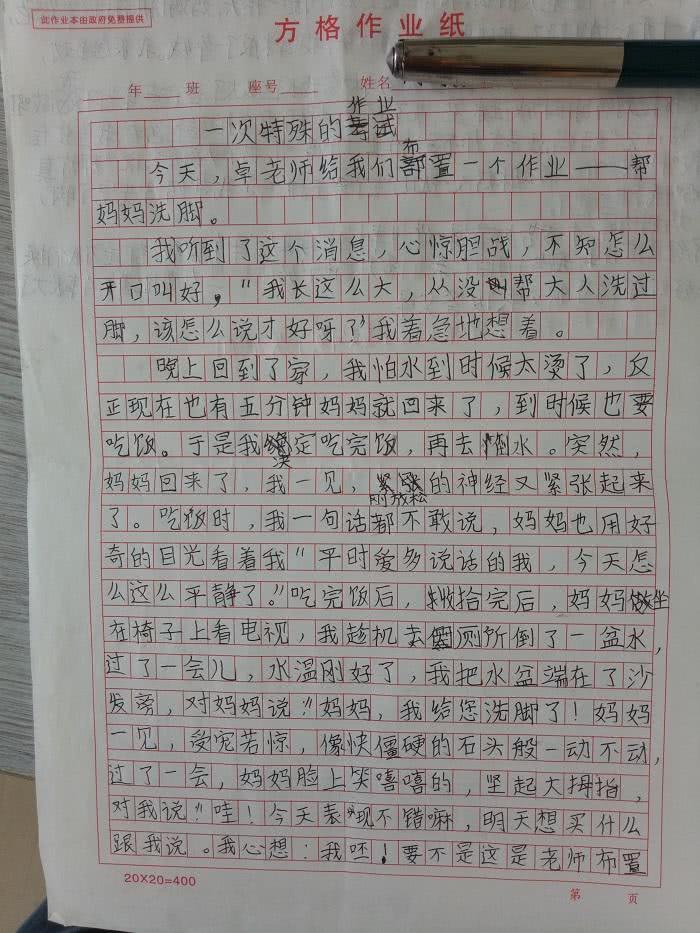 此作业本由政府免费提供
方格作业纸
年 班 座号 姓名
作业
一次特殊的考试
布
今天，卓老师给我们部置一个作业——帮
妈妈洗脚。
我听到了这个消息，心惊胆战，不知怎么
开口叫好，“我长这么大，从没帮大人洗过
脚，该怎么说才好呀了”我着急地想着。
晚上回到了家，我怕水到时候太烫了，反
正现在也有五分钟妈妈就回来了，到时候也要
吃饭。于是我决定吃完饭，再去倒水。突然，
妈妈回来了，我一见，刚放松的神经又紧张起来
了。吃饭时，我一句话都不敢说，妈妈也用好
奇的目光看着我“平时爱多说话的我，今天怎
么这么平静了。”吃完饭后，收拾完后，妈妈坐
在椅子上看电视，我趁机去厕所倒了一盆水，
过了一会儿，水温刚好了，我把水盆端在了沙
发旁，对妈妈说：“妈妈，我给您洗脚了！妈妈
一见，受宠若惊，像快僵硬的石头般一动不动，
过了一会，妈妈脸上笑嘻嘻的，坚起大拇指，
对我说：“哇！今天表现不错嘛，明天想买什么
跟我说。我心想：我呸！要不是这是老师布置
20X20=400
第 页